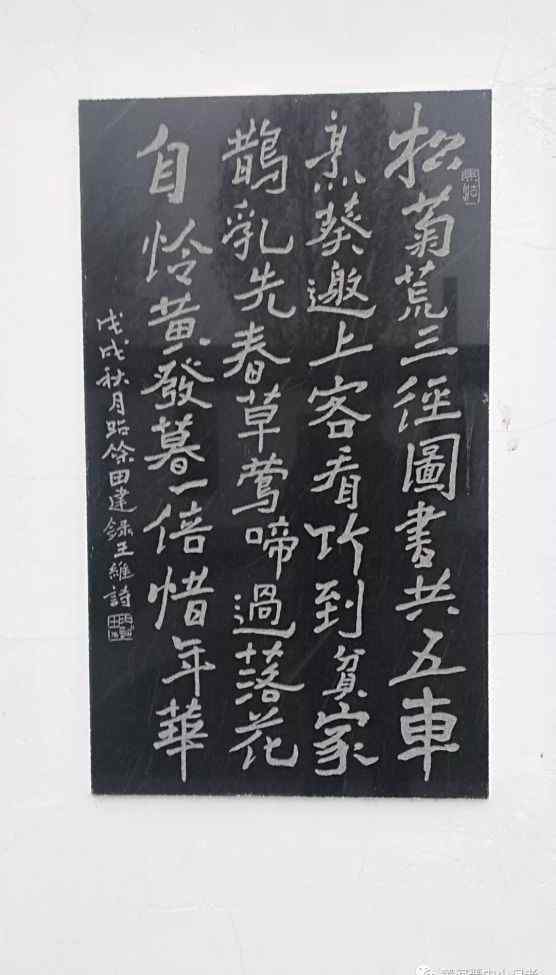 松菊荒三徑圖書共五車
烹葵邀上客看竹到貧家
鵲乳先春草鶯啼過落花
自怜黄發暮一倍惜年華
戊戌秋月田建録王維詩